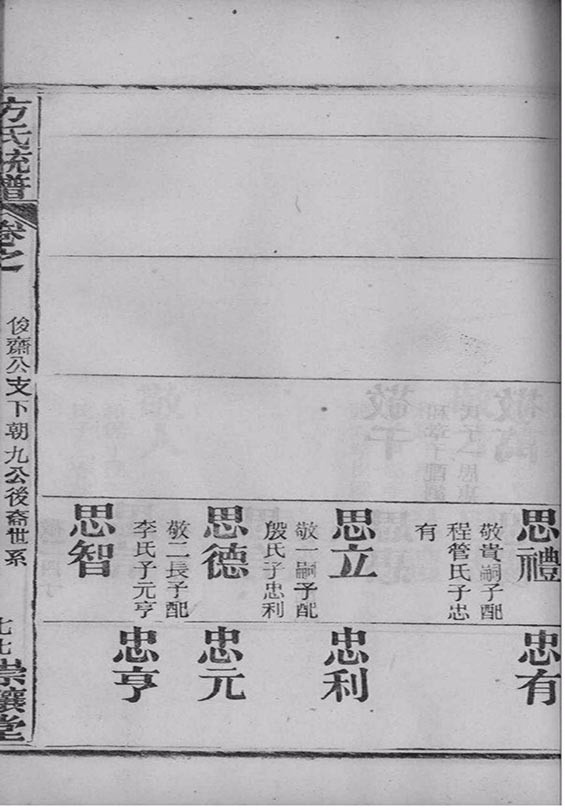 思禮
敬貴嗣子配
程管氏子忠
有
思立
敬一嗣子配
殷氏子忠利
思德
敬二長子配
李氏子元亨
思智
忠有
忠利
忠元
忠亨
方氏統譜
卷之
俊齋公支下朝九公後裔世系
崇讓堂